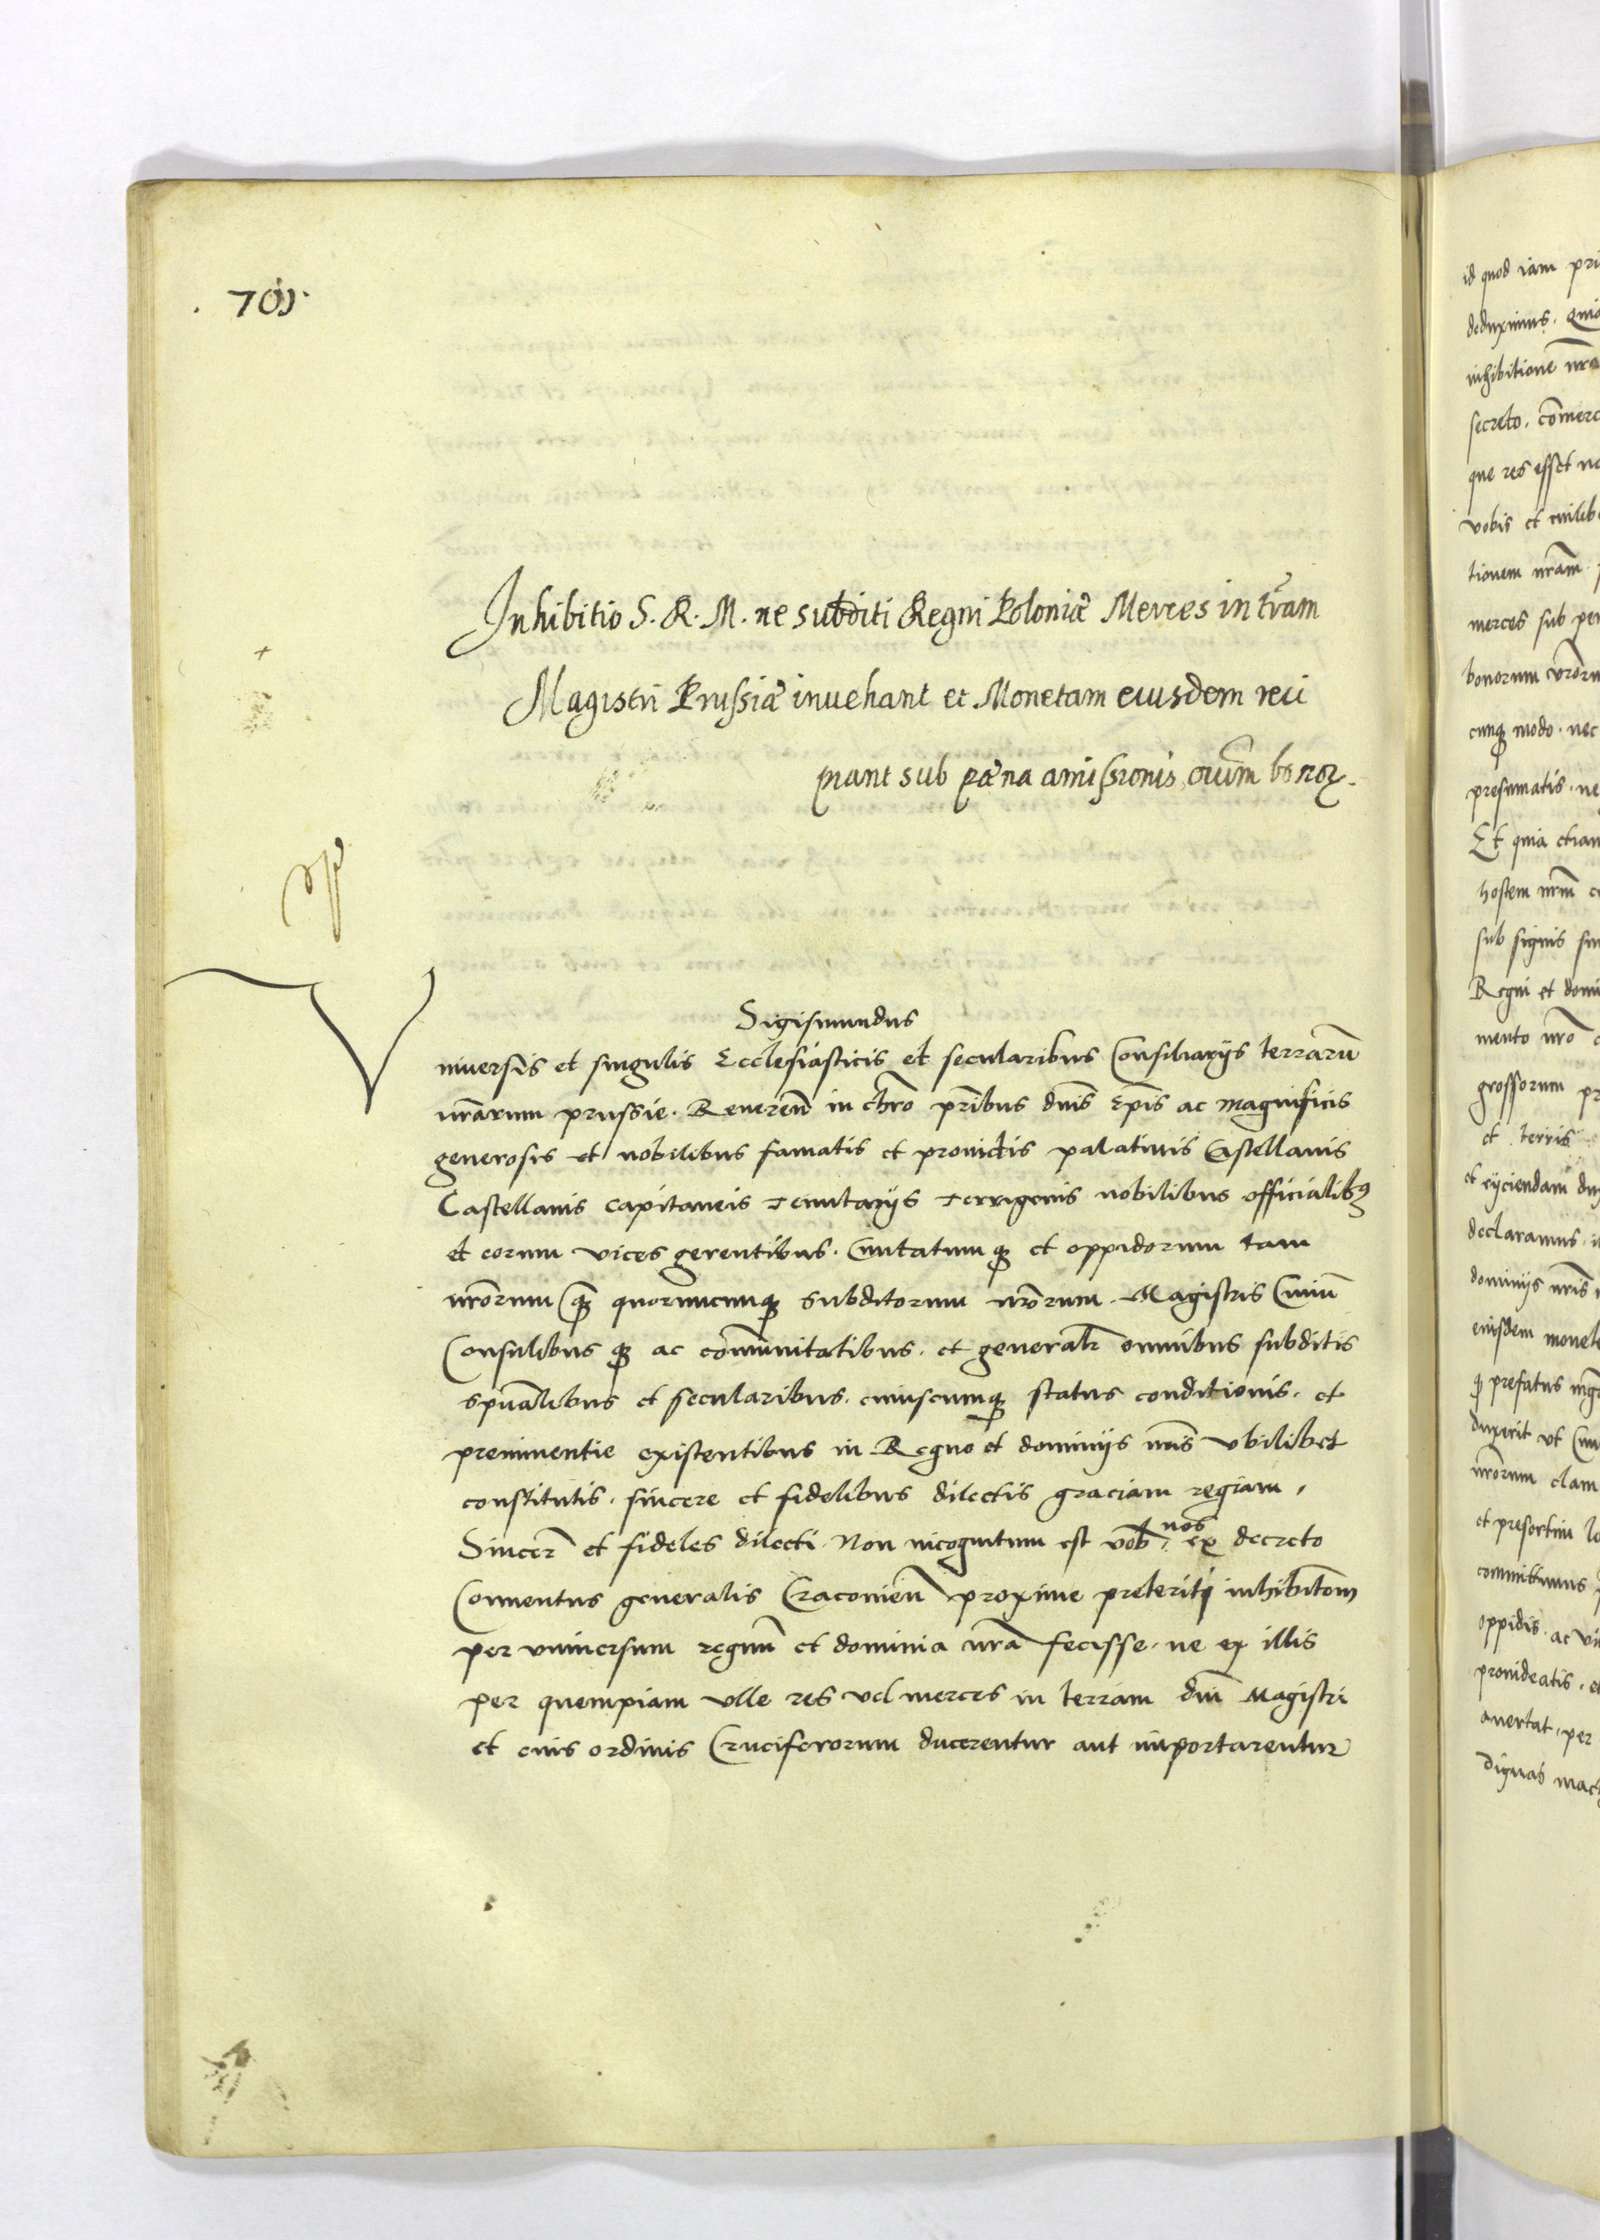 . 701.
Inhibitio S. R. M. ne subditi Regni Poloniæ Merces in tr̃am
Magistri Prussiæ inuehant et Monetam eiusdem reci
piant sub pœna amissionis, oium̃ bonoꝝ.
Sigismundus
Vniuersis et singulis Ecclesiasticis et secularibus Consiliarijs terrarũ
nr̃arum prussie. Reueren̄ in chr̃o pr̃ibus dnĩs Ep̃is ac magnificis
generosis et nobilibus famatis et prouidis palatinis Castellanis
Castellanis capitaneis tenutarijs terrigenis nobilibus officialibꝰ
et eorum vices gerentibus. Ciuitatumqꝫ et oppidorum tam
nr̃orum qꝫ quorumcumqꝫ subditorum nr̃orum. Magistris Ciuiũ
Consulibus qꝫ ac com̃unitatibus. et generalr̃ omnibus subditis
spũalibus et secularibus. cuiuscumqꝫ status conditionis. et
preminentie existentibus in Regno et dominijs nr̃is vbilibet
constitutis. sincere et fidelibus dilectis graciam regiam.
Sincer̃ et fideles dilecti. Non incognitum est vob̃. nos ex decreto
Conuentus generalis Cracouien̄ proxime preteriti inhibitõm
per vniuersum regnũ et dominia nr̃a fecisse. ne ex illis
per quempiam vlle res vel merces in terram dnĩ Magistri
et eius ordinis Cruciferorum ducerentur aut importarentur
id quod iam pri
deduximus. Quia
inhibitionẽ nr̃a
secreto. com̃erc
que res esset no
vobis et cuilib
tionem nr̃am.
merces sub pen
bonorum vr̃oru
cunqꝫ modo. nec
presumatis. ne
Et quia etiam
hostem nr̃m c
sub signis sin
Regni et domi
mento nr̃o
grossorum pr
et terris
et eijciendam du
declaramus. i
dominijs nr̃is
eiusdem monete
qꝫ prefatus mgr̃
duxerit vt Ciu
nr̃orum clam
et presertim lo
committimus
oppidis. ac vi
prouideatis. et
auertat. per
dignas mac